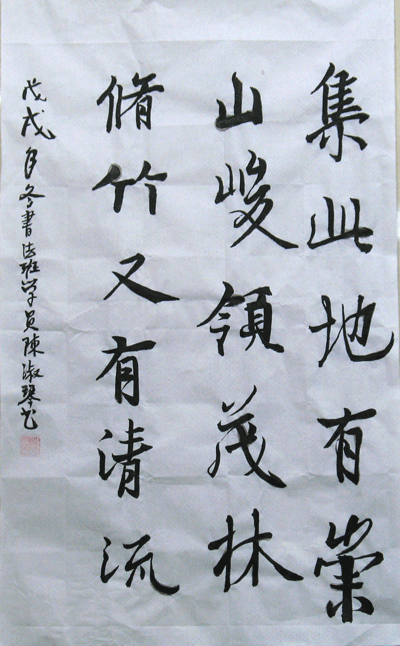 集此地有崇
山峻領茂林
脩竹又有清流
戊戌冬書法班学员陳淑琴书